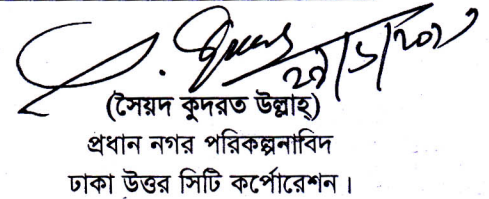 (সৈয়দ কুদরত উল্লাহ্)
প্রধান নগর পরিকল্পনাবিদ
ঢাকা উত্তর সিটি কর্পোরেশন।